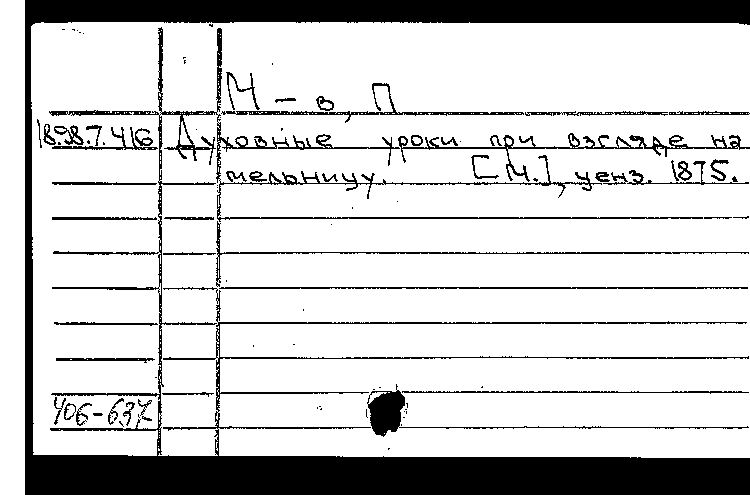 М-в, П
18.98.7.416 Духовные уроки при взгляде на
мельницу. [М.], ценз. 1875.
406-637